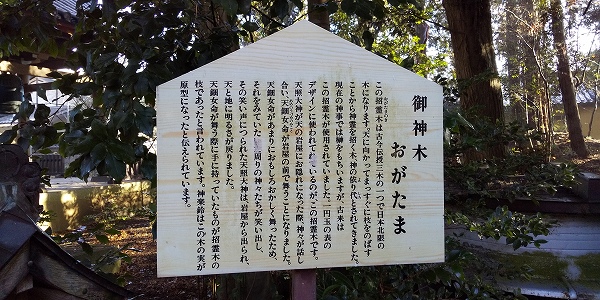 御神木
おがたま
この招霊木は古今伝授三木の一つで日本北限の
木になります。天に向かってまっすぐに枝をのばす
ことから神霊を招く木、神の依り代とされてきました。
現在の神事では榊をもちいますが、古来は
この招霊木が使用されていました。一円玉の表の
デザインに使われているのがこの招霊木です。
天照大神が天の岩屋にお隠れになった際、神々が話し
合い、天鈿女命が岩屋の前で舞うことになりました。
天鈿女命があまりにおもしろおかしく舞ったため、
それをみていた 周りの神々たちが笑い出し、
その笑い声につられた天照大神は、岩屋から出られ、
天と地に明るさが戻りました。
天鈿女命が舞う際に手に持っていたものが招霊木の
枝であったと言われています。神楽鈴はこの木の実が
原型になったと伝えられています。